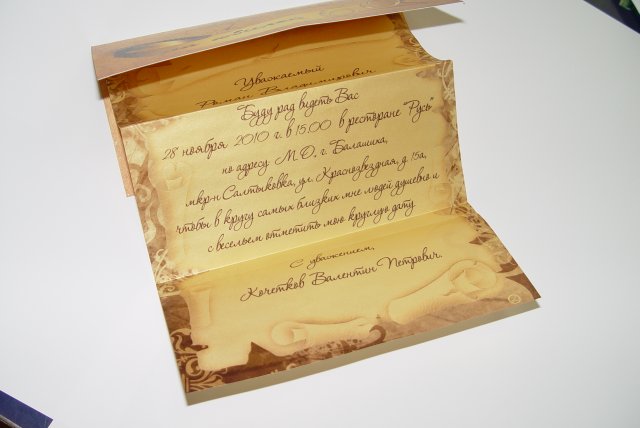 Уважаемый
Роман Владимирович
Буду рад видеть Вас
28 ноября 2010 г. в 15.00 в ресторане "Русь"
по адресу М.О., г. Балашиха,
мкр-н Салтыковка, ул. Краснозвездная, д. 15а,
чтобы в кругу самых близких мне людей душевно и
с весельем отметить мою круглую дату
С уважением,
Кочетков Валентин Петрович.